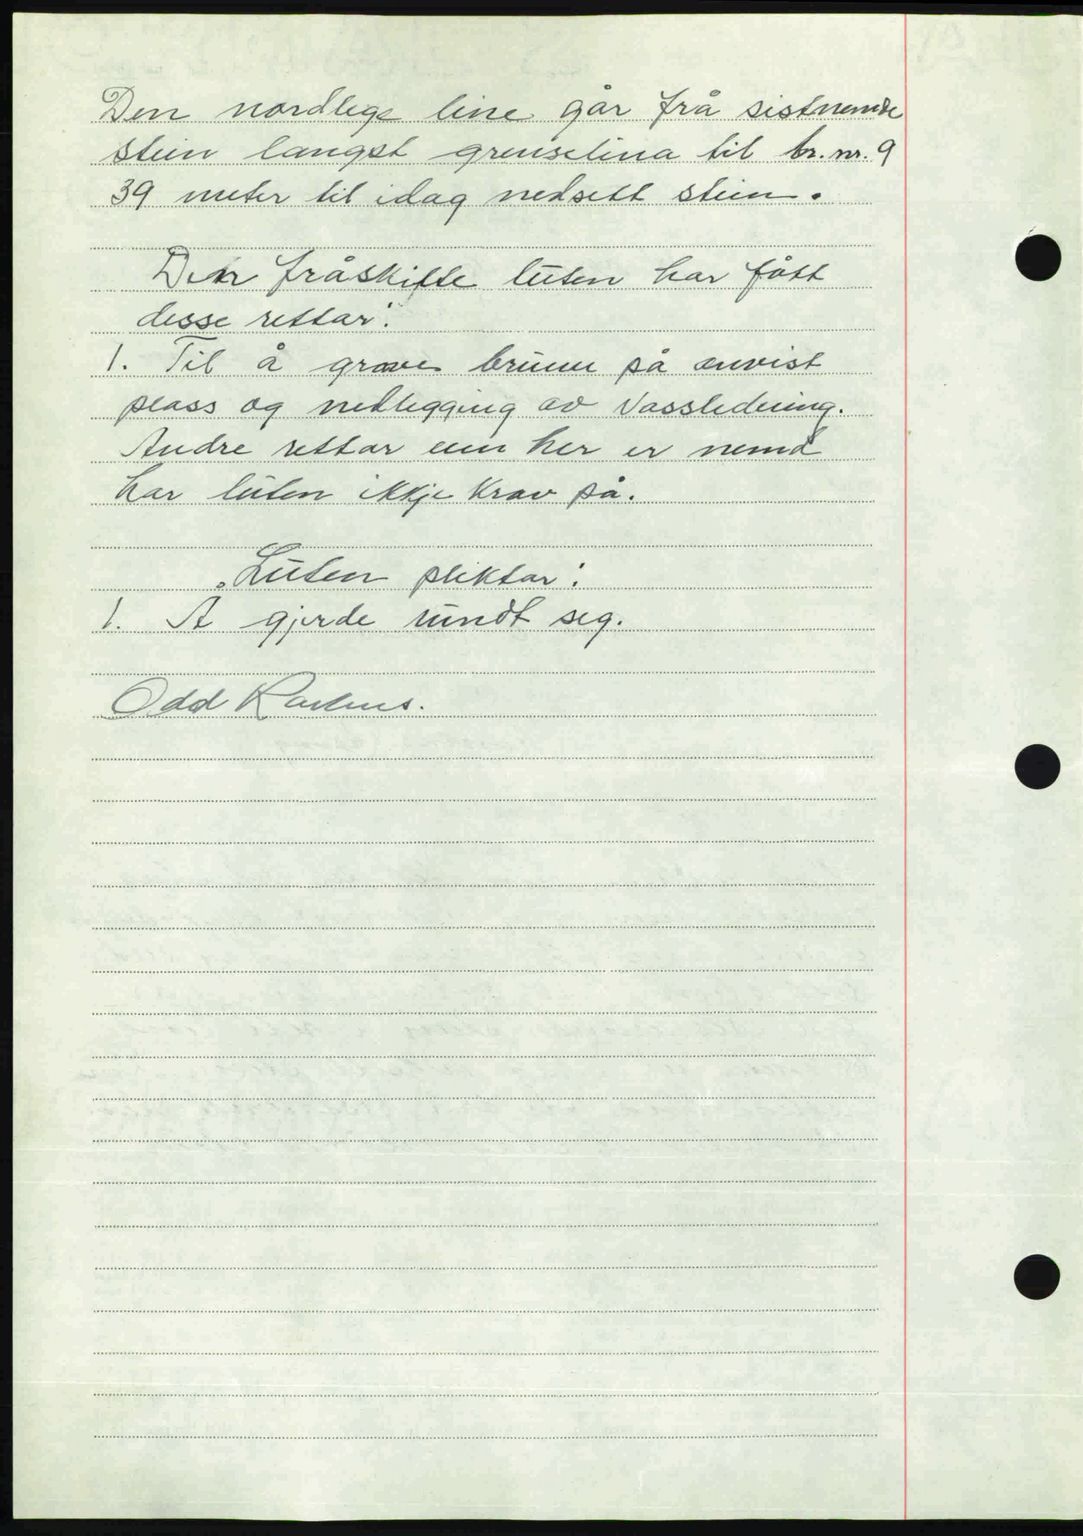 Den nordlege line går frå sistnemde
stein langst grenselina til br. nr. 9
39 meter til idag nedsett stein.
Den fråskifte luten har fått
desse rettar:
1. Til å grave brunn på anvist
plass og nedlegging av Vassledning.
Andre rettar enn her er nemd
har luten ikkje krav på.
Luten pliktar:
1. Å gjerde rundt seg.
Odd